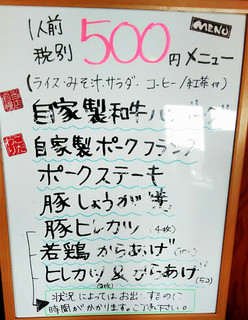 1人前 税別 500円 メニュー
MENU
(ライス・みそ汁・サラダ・コーヒー/紅茶付)
当店自慢 自家製和牛ハンバーグ
こだわり 自家製ポークフランク
ポークステーキ
豚しょうが焼
豚ヒレカツ (4枚)
若鶏からあげ
ヒレカツ&からあげ
(2枚) (5コ)
状況によってはお出しするのに
時間がかかります。ご了承下さい。